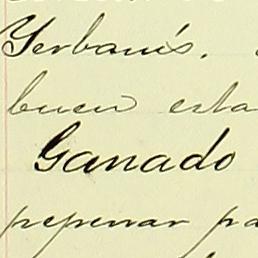 Yerbanís.
buen esta
Ganado
pepenar pa